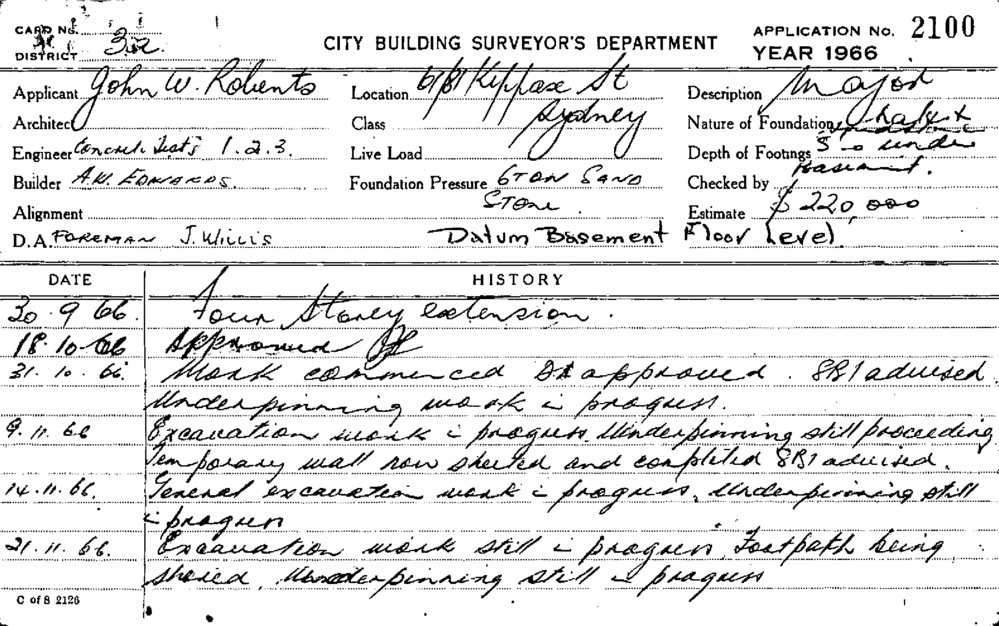 CARD No.
DISTRICT 32.
CITY BUILDING SURVEYOR'S DEPARTMENT
APPLICATION No. 2100
YEAR 1966
Applicant John W. Roberts
Location 61/81 Kippax St
Description Major
Architect
Class Sydney
Nature of Foundations
Engineer Concrete Tests 1.2.3.
Live Load
Depth of Footings under
Builder A.W. EDWARDS.
Foundation Pressure 6 TON SAND
Basement.
Checked by
STONE
Alignment
Estimate $220,000
D.A. FOREMAN J. WILLIS
Datum Basement Floor Level.
DATE HISTORY
20.9.66. Four Storey extension.
18.10.66 Approved
31.10.66. Work commenced as approved. SBI advised.
Underpinning work in progress.
9.11.66 Excavation work in progress. Underpinning still proceeding
Temporary wall now sheeted and completed SBI advised.
14.11.66. General excavation work in progress, Underpinning still
in progress
21.11.66. Excavation work still in progress, Footpath being
shored, Underpinning still in progress
C of S 2126